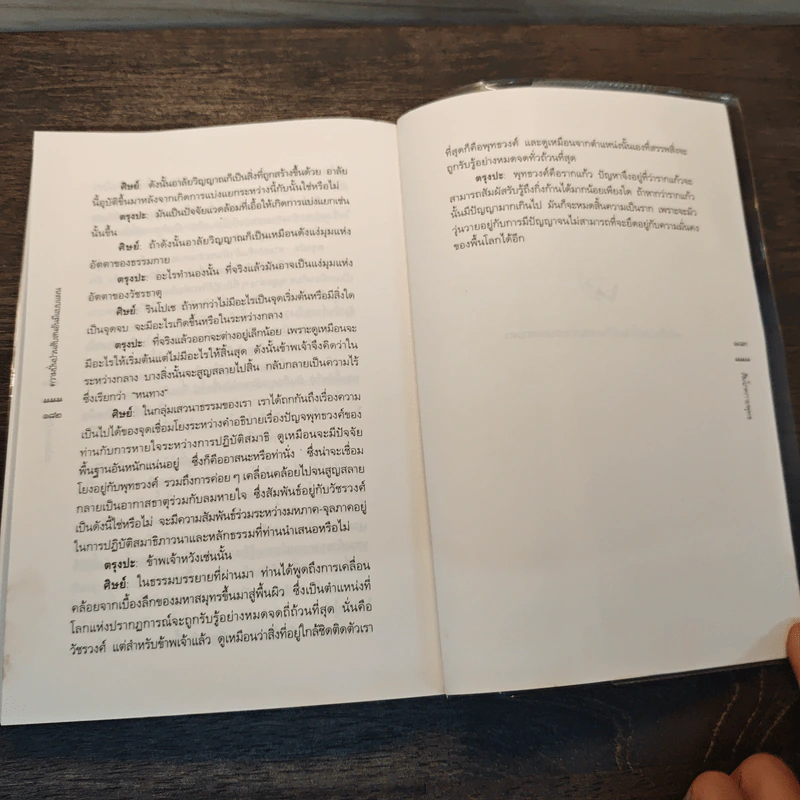 ศิษย์: ดังนั้นอาลัยวิญญาณก็เป็นสิ่งที่ถูกสร้างขึ้นด้วย อาลัย
นี้อุบัติขึ้นมาหลังจากเกิดการแบ่งแยกระหว่างนี้กับนั้นใช่หรือไม่
ตรุงปะ: มันเป็นปัจจัยแวดล้อมที่เอื้อให้เกิดการแบ่งแยกเช่น
นั้นขึ้น
ศิษย์: ถ้าดังนั้นอาลัยวิญญาณก็เป็นเหมือนดังแง่มุมแห่ง
อัตตาของธรรมกาย
ตรุงปะ: อะไรทำนองนั้น ที่จริงแล้วมันอาจเป็นแง่มุมแห่ง
อัตตาของวัชรธาตุ
ศิษย์: รินโปเช ถ้าหากว่าไม่มีอะไรเป็นจุดเริ่มต้นหรือมีสิ่งใด
เป็นจุดจบ จะมีอะไรเกิดขึ้นหรือในระหว่างกลาง
ตรุงปะ: ที่จริงแล้วออกจะต่างอยู่เล็กน้อย เพราะดูเหมือนจะ
มีอะไรให้เริ่มต้นแต่ไม่มีอะไรให้สิ้นสุด ดังนั้นข้าพเจ้าจึงคิดว่าใน
ระหว่างกลาง บางสิ่งนั้นจะสูญสลายไปสิ้น กลับกลายเป็นความไร้
ซึ่งเรียกว่า "หนทาง"
ศิษย์: ในกลุ่มเสวนาธรรมของเรา เราได้ถกกันถึงเรื่องความ
เป็นไปได้ของจุดเชื่อมโยงระหว่างคำอธิบายเรื่องปัญจพุทธวงศ์ของ
ท่านกับการหายใจระหว่างการปฏิบัติสมาธิ ดูเหมือนจะมีปัจจัย
พื้นฐานอันหนักแน่นอยู่ ซึ่งก็คืออาสนะหรือท่านั่ง ซึ่งน่าจะเชื่อม
โยงอยู่กับพุทธวงศ์ รวมถึงการค่อยๆ เคลื่อนคล้อยไปจนสูญสลาย
กลายเป็นอากาศธาตุร่วมกับลมหายใจ ซึ่งสัมพันธ์อยู่กับวัชรวงศ์
เป็นดังนี้ใช่หรือไม่ จะมีความสัมพันธ์ร่วมระหว่างมหภาค-จุลภาคอยู่
ในการปฏิบัติสมาธิภาวนาและหลักธรรมที่ท่านนำเสนอหรือไม่
ตรุงปะ: ข้าพเจ้าหวังเช่นนั้น
ศิษย์: ในธรรมบรรยายที่ผ่านมา ท่านได้พูดถึงการเคลื่อน
คล้อยจากเบื้องลึกของมหาสมุทรขึ้นมาสู่พื้นผิว ซึ่งเป็นตำแหน่งที่
โลกแห่งปรากฏการณ์จะถูกรับรู้อย่างหมดจดถี่ถ้วนที่สุด นั่นคือ
วัชรวงศ์ แต่สำหรับข้าพเจ้าแล้ว ดูเหมือนว่าสิ่งที่อยู่ใกล้ชิดติดตัวเรา
ที่สุดก็คือพุทธวงศ์ และดูเหมือนจากตำแหน่งนั้นเองที่สรรพสิ่งจะ
ถูกรับรู้อย่างหมดจดทั่วถ้วนที่สุด
ตรุงปะ: พุทธวงศ์คือรากแก้ว ปัญหาจึงอยู่ที่ว่ารากแก้วจะ
สามารถสัมผัสรับรู้ถึงกิ่งก้านได้มากน้อยเพียงใด ถ้าหากว่ารากแก้ว
นั้นมีปัญญามากเกินไป มันก็จะหมดสิ้นความเป็นราก เพราะจะมัว
วุ่นวายอยู่กับการมีปัญญาจนไม่สามารถที่จะยึดอยู่กับความมั่นคง
ของพื้นโลกได้อีก